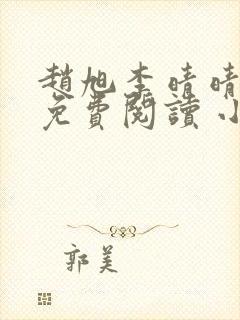 趙旭李晴晴
免費閱讀小
郭美